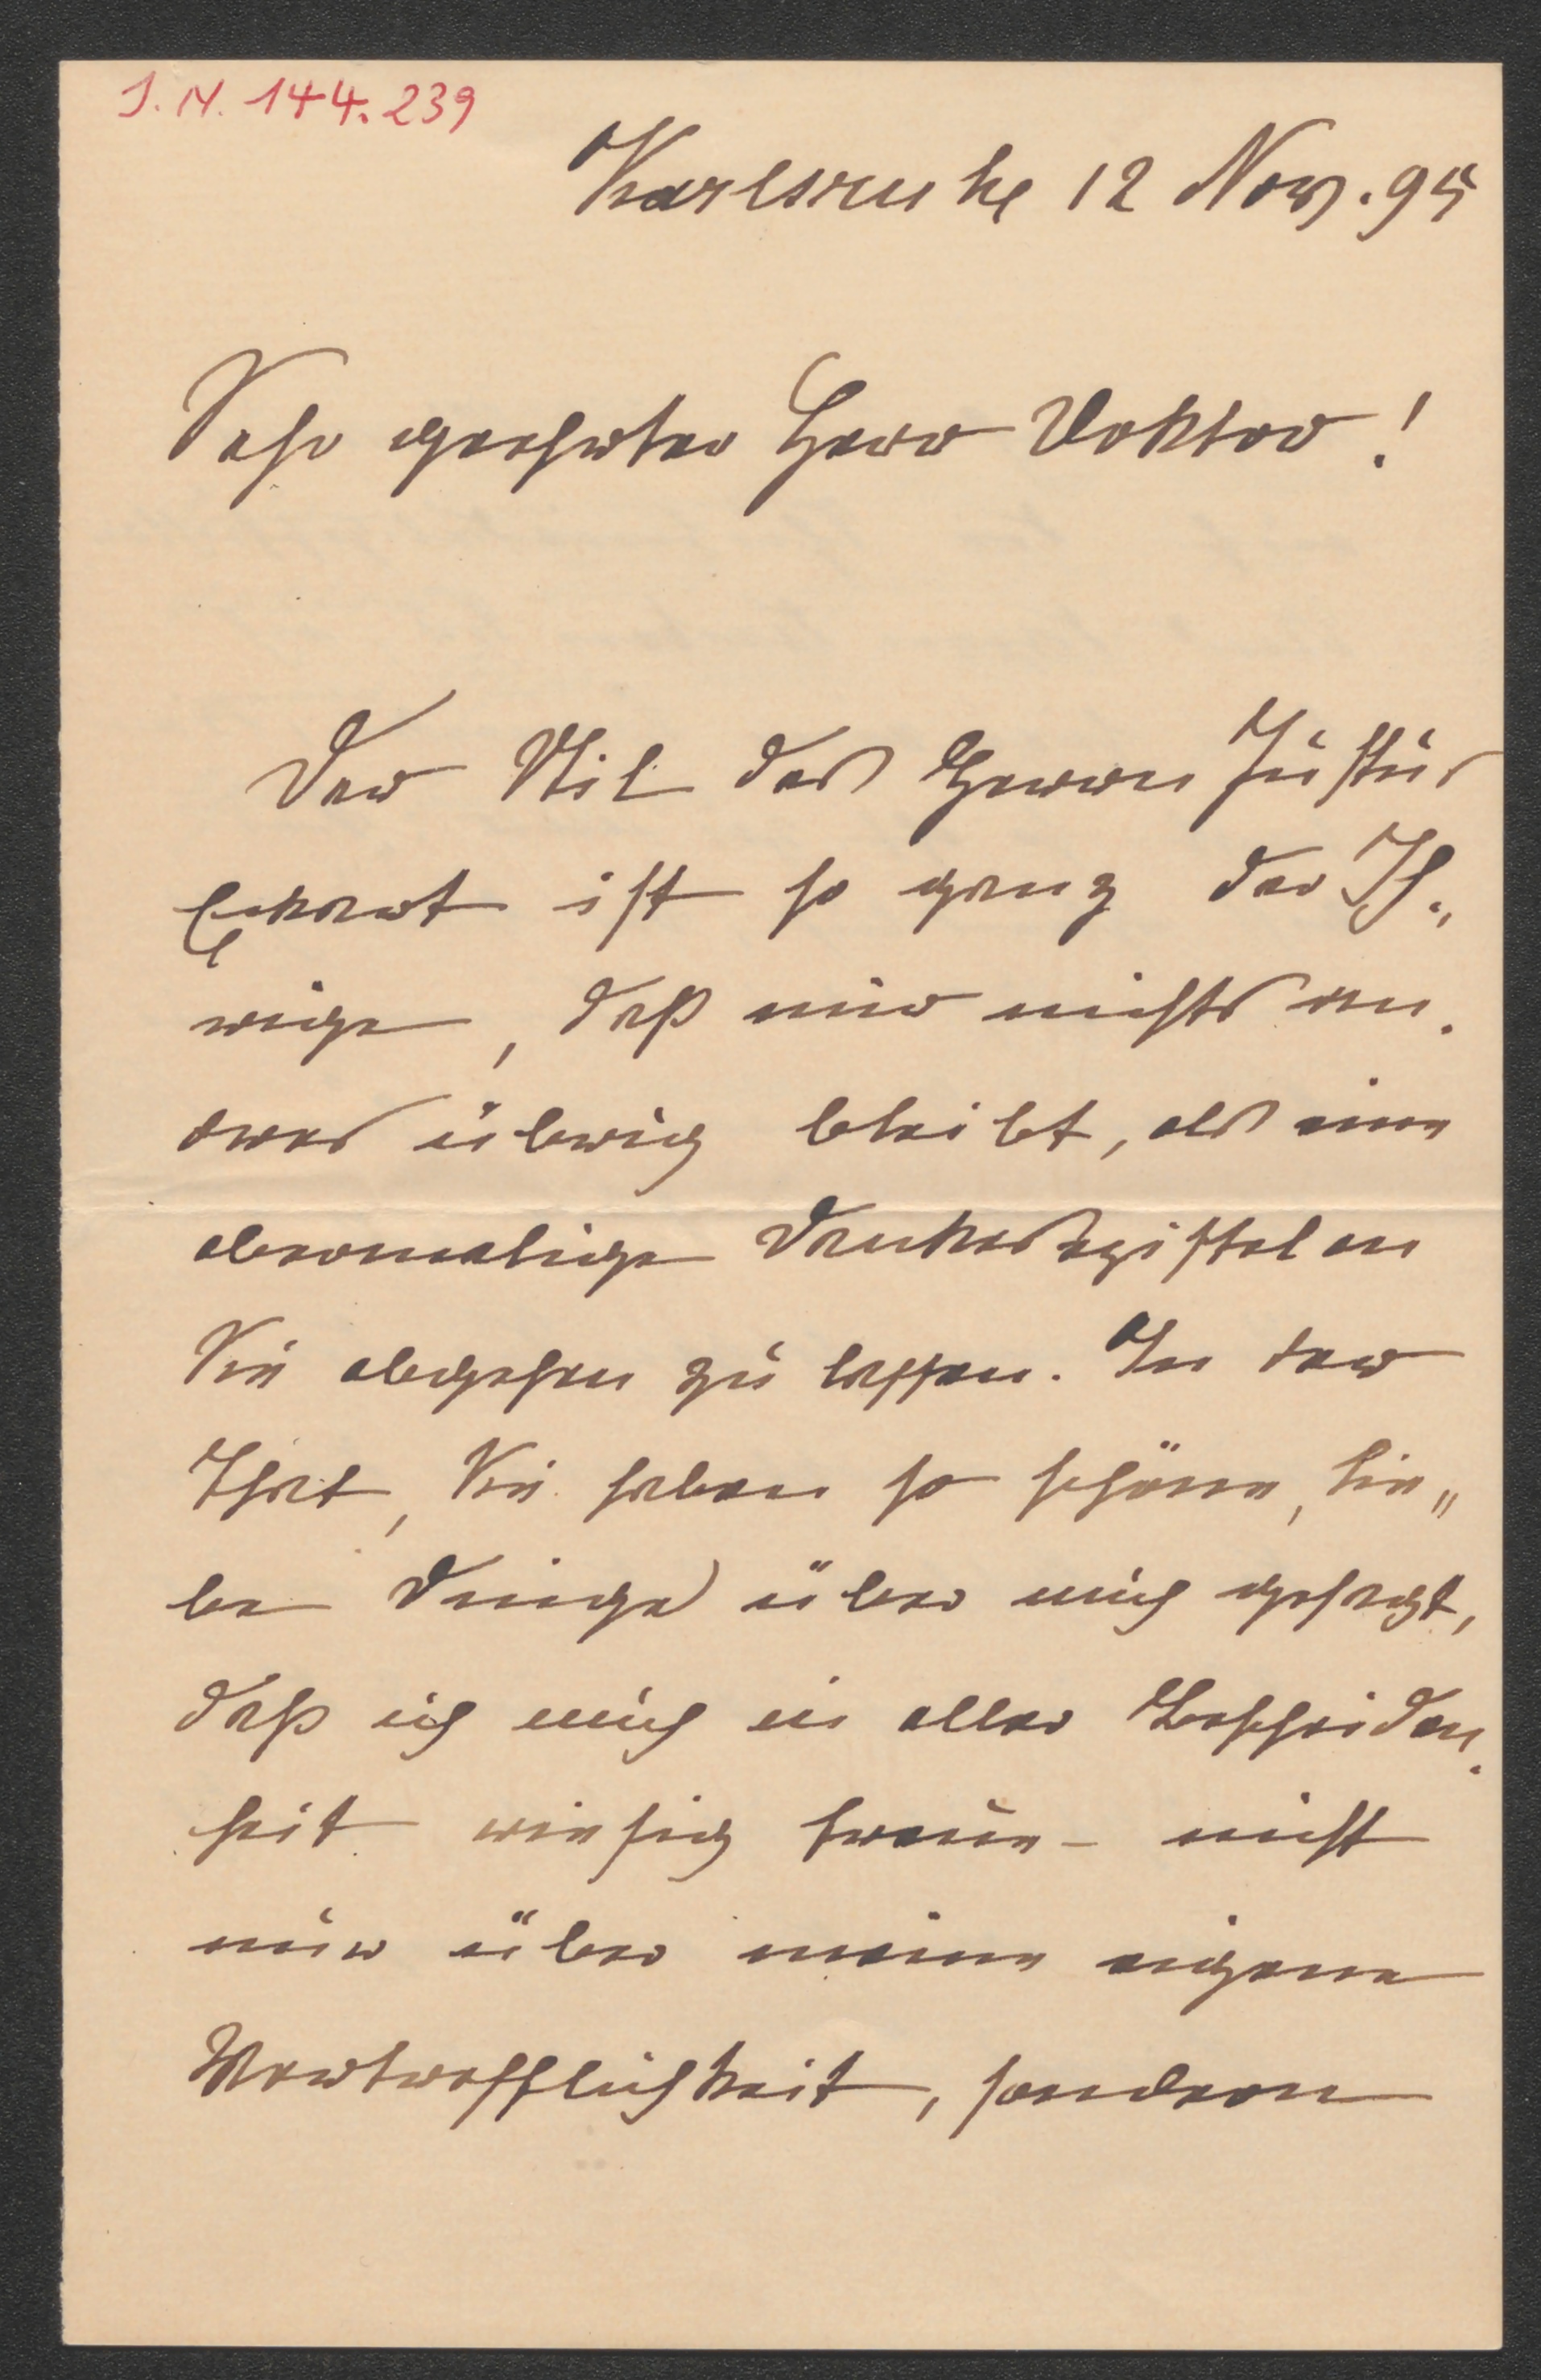 J. N. 144.239
Karlsruhe 12 Nov. 95
Sehr geehrter Herr Doktor!
Der Stil des Herrn Justus
Eckart ist so ganz der Ih„
rige, daß mir nichts an-
deres übrig bleibt, als eine
abermalige Dankesepistel an
Sie abgehen zu lassen. In der
That, Sie haben so schöne, lie„
be Dinge über mich gesagt,
daß ich mich in aller Bescheiden-
heit riesig freue – nicht
nur über meine eigene
Vortrefflichkeit, sondern